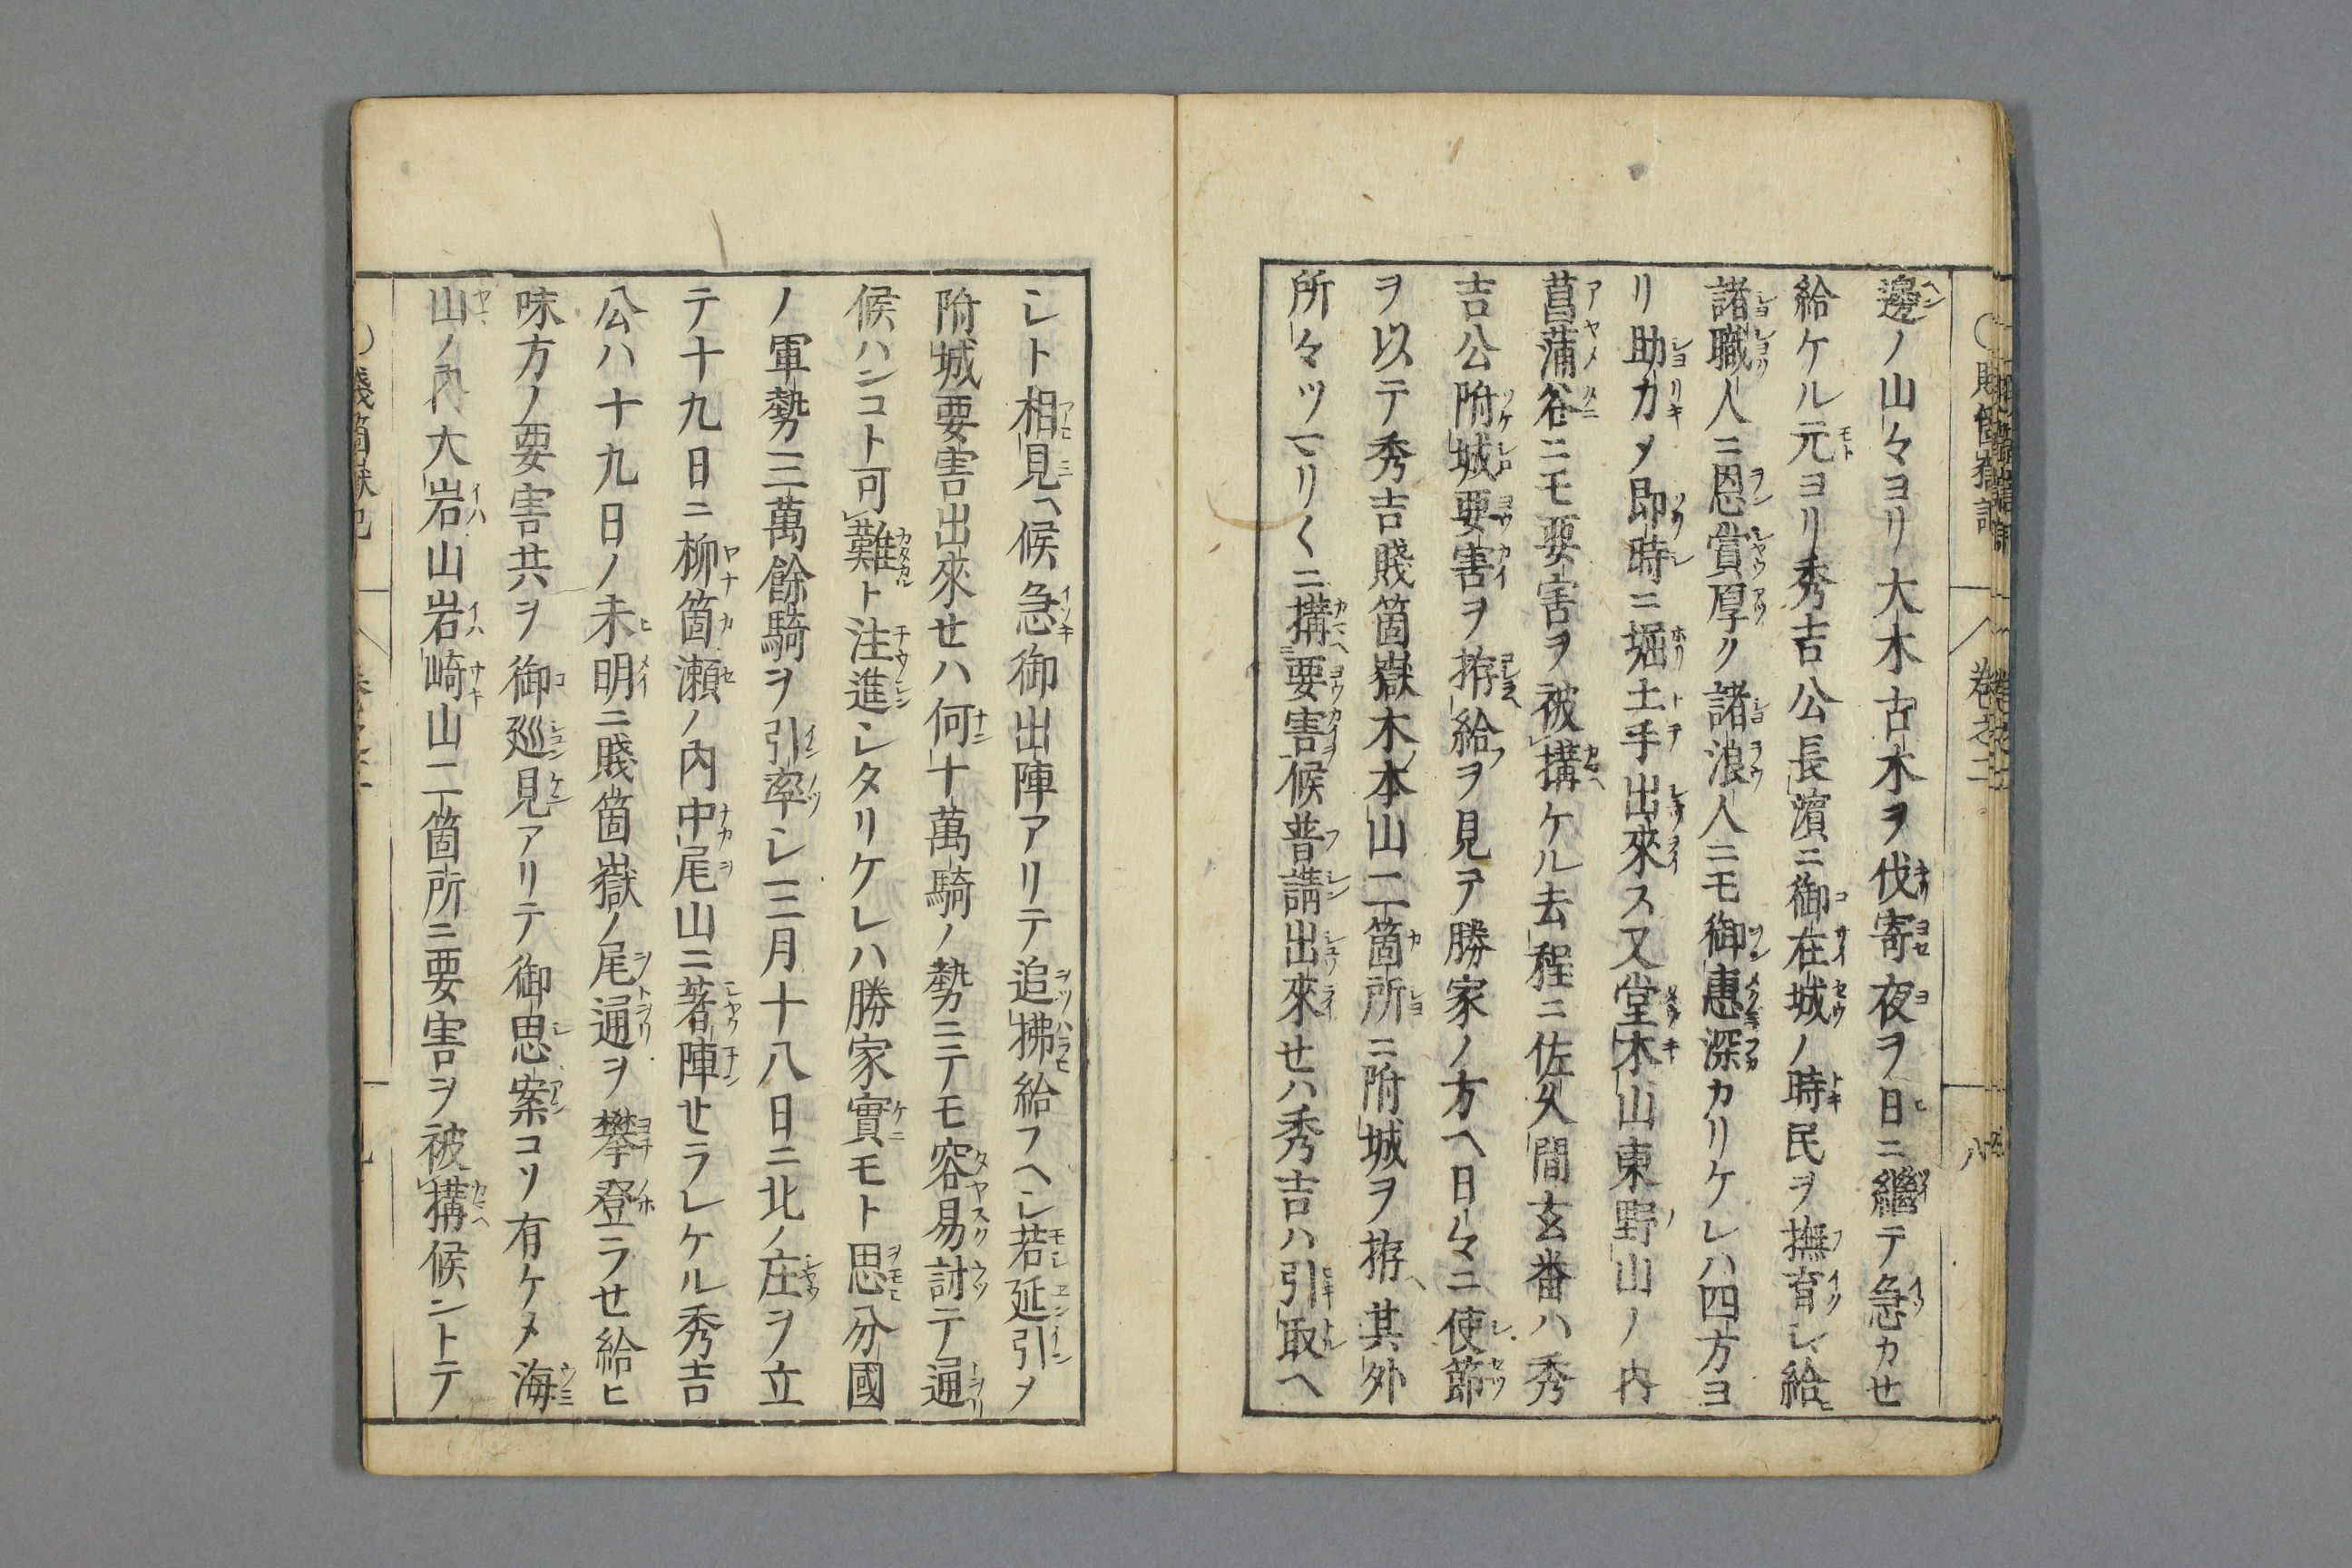 邊ノ山々ヨリ大木古木ヲ伐寄夜ヲ日ニ繼テ急カせ
給ケル元ヨリ秀吉公長濱ニ御在城ノ時民ヲ撫育シ給
諸職人ニ恩賞厚ク諸浪人ニモ御惠深カリケレハ四方ヨ
リ助力メ即時ニ堀土手出來ス又堂木山東野山ノ内
菖蒲谷ニモ要害ヲ被構ケル去程ニ佐久間玄番ハ秀
吉公附城要害ヲ拵給ヲ見テ勝家ノ方ヘ日々ニ使節
ヲ以テ秀吉賤箇嶽木本山二箇所ニ附城ヲ拵其外
所々ツマリ〱ニ構要害候普請出來せハ秀吉ハ引取ヘ
シト相見ヘ候急御出陣アリテ追拂給フヘシ若延引メ
附城要害出來せハ何十萬騎ノ勢ニテモ容易討テ通
候ハンコト可難ト注進シタリケレハ勝家實モト思分國
ノ軍勢三萬餘騎ヲ引率シ三月十八日ニ北ノ庄ヲ立
テ十九日ニ柳箇瀬ノ内中尾山ニ著陣せラレケル秀吉
公ハ十九日ノ未明ニ賤箇嶽ノ尾通ヲ攀登ラせ給ヒ
味方ノ要害共ヲ御廵見アリテ御思案コソ有ケメ海
山ノ内大岩山岩崎山二箇所ニ要害ヲ被構候ントテ